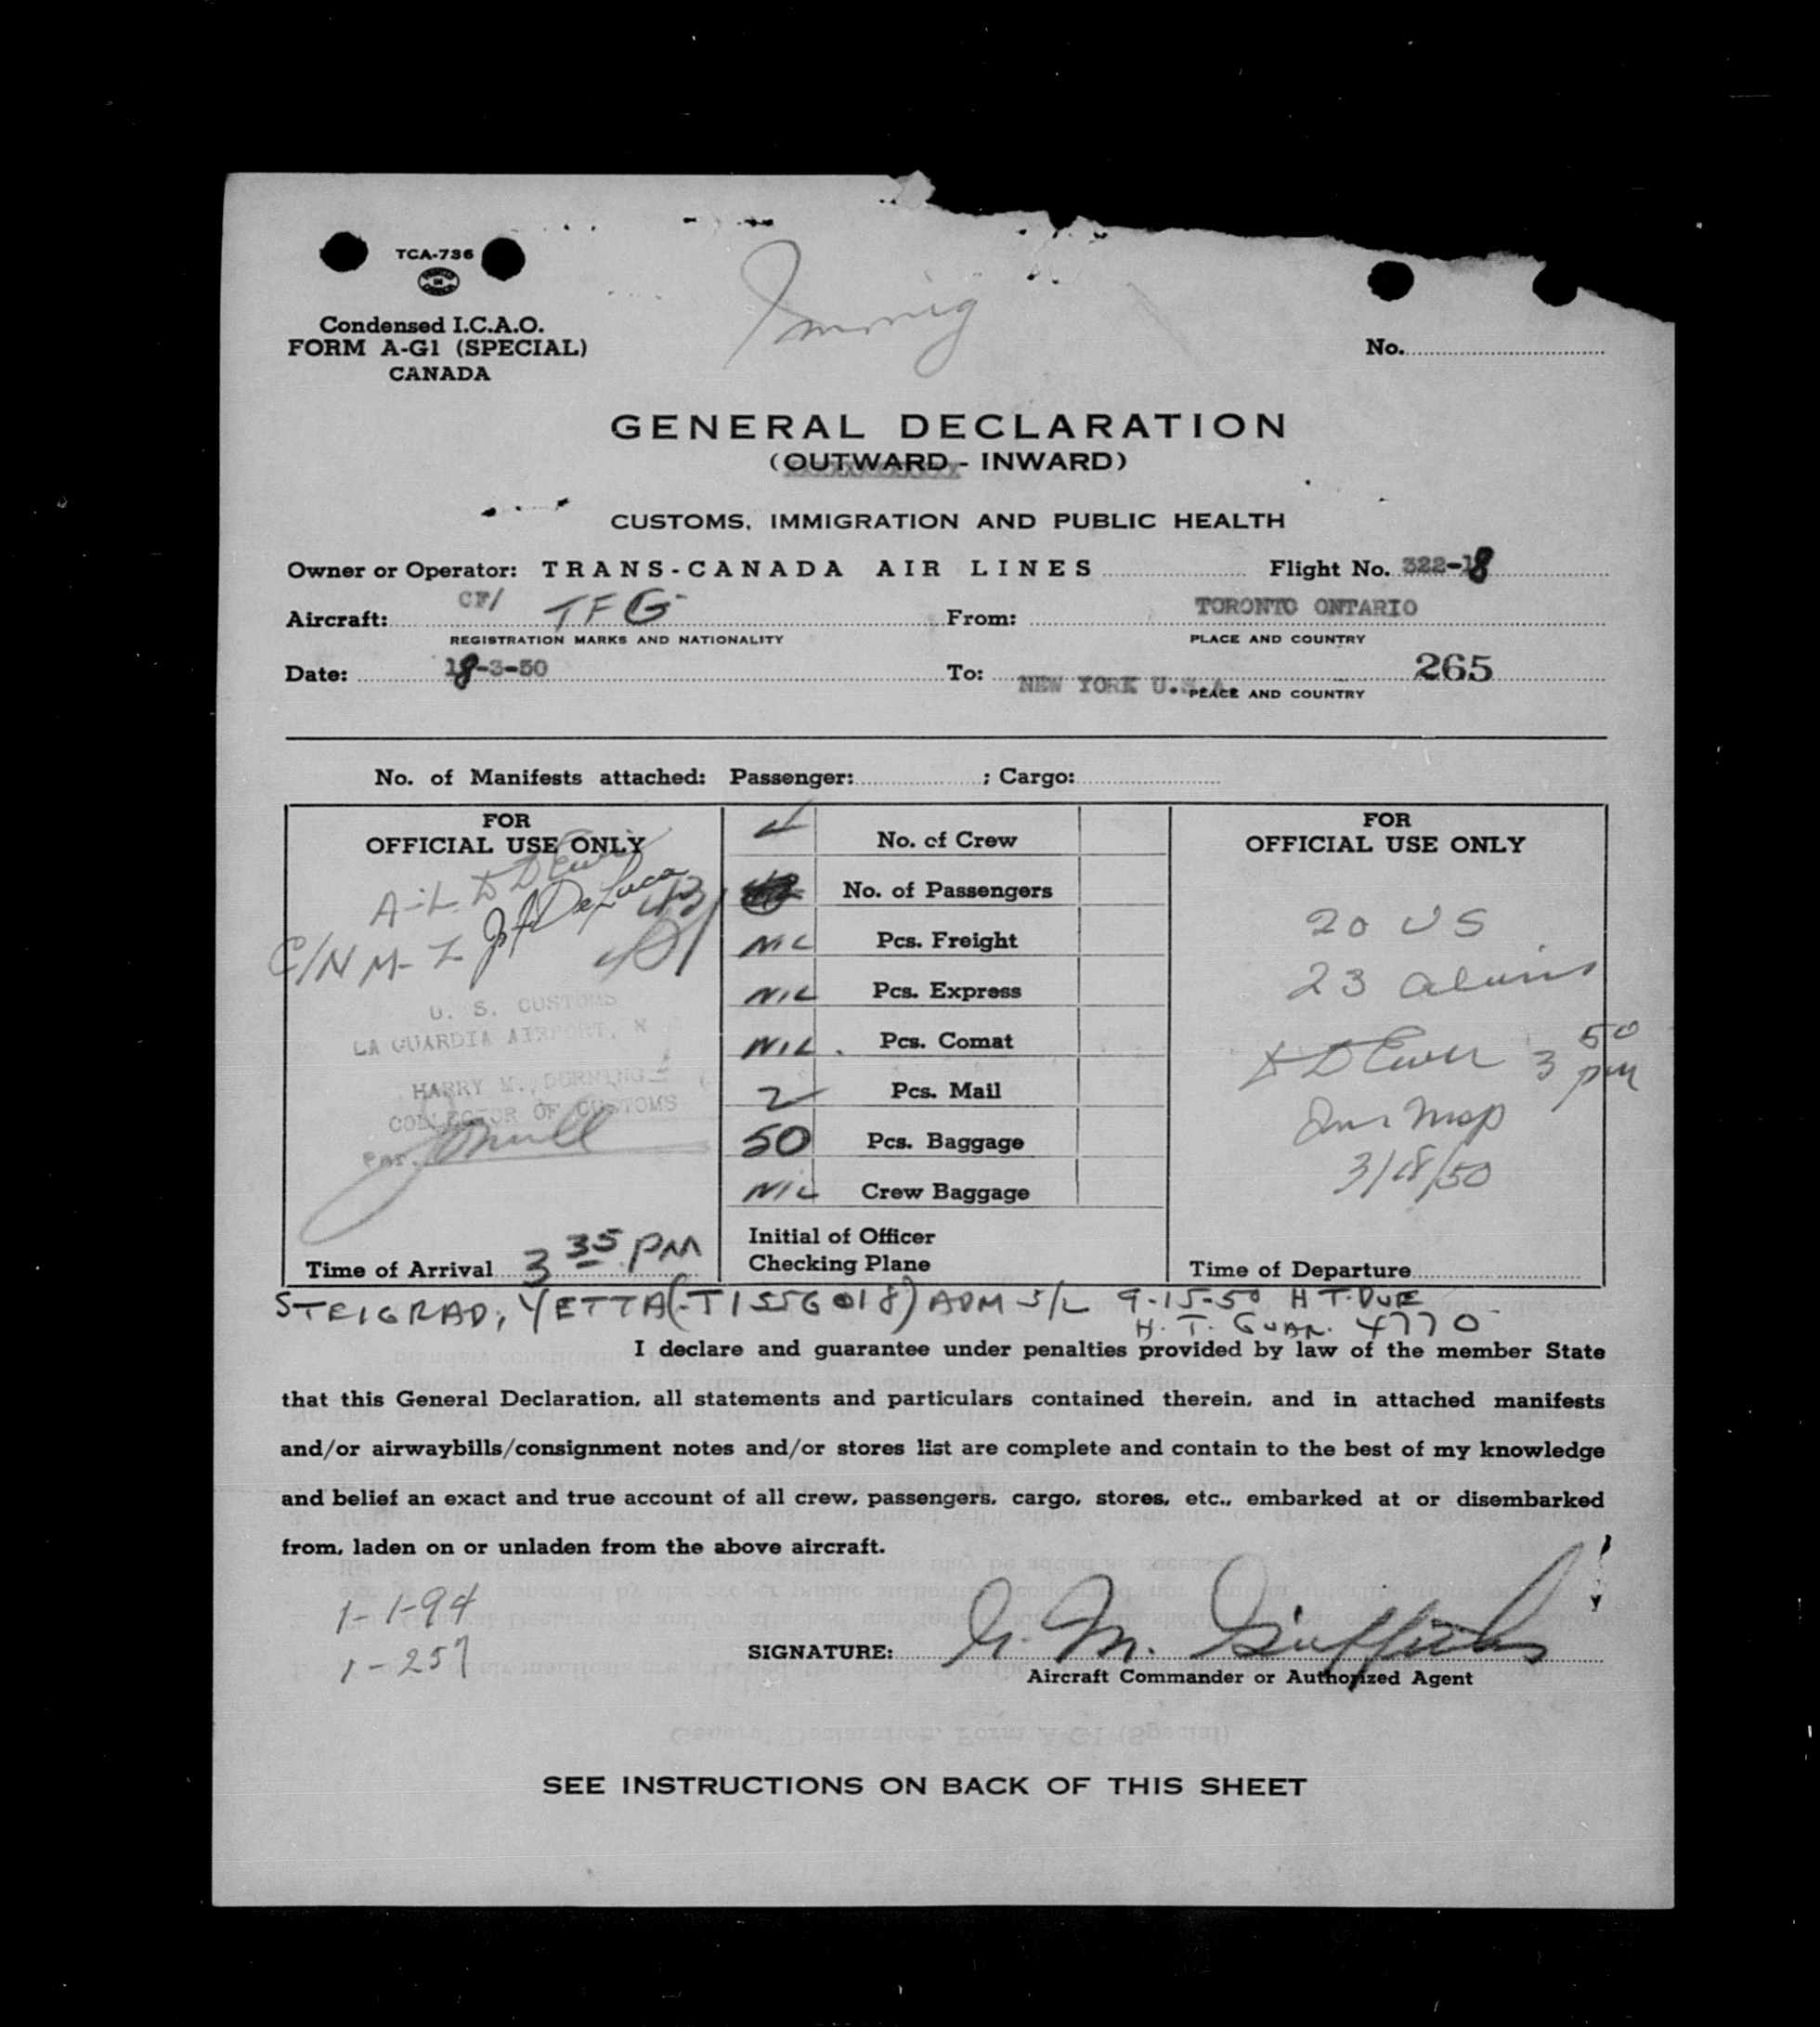 TCA-736
Immig
Condensed I.C.A.O.
FORM A-G1 (SPECIAL)
CANADA
No.
GENERAL DECLARATION
(OUTWARD - INWARD)
CUSTOMS, IMMIGRATION AND PUBLIC HEALTH
Owner or Operator: TRANS-CANADA AIR LINES Flight No. 322-18
Aircraft: CF/ TFG From: TORONTO ONTARIO
REGISTRATION MARKS AND NATIONALITY PLACE AND COUNTRY
Date: 18-3-50 To: NEW YORK U.S.A. 265
PLACE AND COUNTRY
No. of Manifests attached: Passenger: ; Cargo:
FOR
OFFICIAL USE ONLY
A-L
J A DeLuca 43
C/N M-Z
U. S. CUSTOMS
LA GUARDIA AIRPORT, N
HARRY M. DURNING
COLLECTOR OF CUSTOMS
Per.
Time of Arrival 3 35 PM
4 No. of Crew
No. of Passengers
NIL Pcs. Freight
NIL Pcs. Express
NIL Pcs. Comat
2 Pcs. Mail
50 Pcs. Baggage
NIL Crew Baggage
Initial of Officer
Checking Plane
FOR
OFFICIAL USE ONLY
20 US
23 aliens
3 50 pm
Imm Insp
3/18/50
Time of Departure
STEIGRAD, YETTA (T1556018) ADM S/L 9-15-50 H T. DUE
H. T. GUAR. 4770
I declare and guarantee under penalties provided by law of the member State
that this General Declaration, all statements and particulars contained therein, and in attached manifests
and/or airwaybills/consignment notes and/or stores list are complete and contain to the best of my knowledge
and belief an exact and true account of all crew, passengers, cargo, stores, etc., embarked at or disembarked
from, laden on or unladen from the above aircraft.
1-1-94
1-257
SIGNATURE: G. M. Griffiths
Aircraft Commander or Authorized Agent
SEE INSTRUCTIONS ON BACK OF THIS SHEET